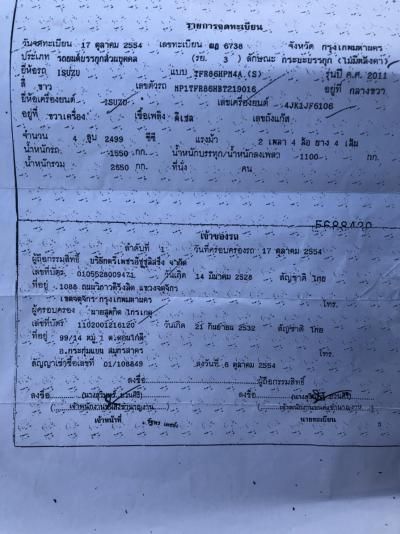 รายการจดทะเบียน
วันจดทะเบียน 17 ตุลาคม 2554 เลขทะเบียน 6738 จังหวัด กรุงเทพมหานคร
ประเภท รถยนต์บรรทุกส่วนบุคคล (รย. 3 ) ลักษณะ กระบะบรรทุก (ไม่มีหลังคา)
ยี่ห้อรถ ISUZU แบบ TFR86HPM4A (S) รุ่นปี ค.ศ. 2011
สี ขาว เลขตัวรถ MP1TFR86HBT219016 อยู่ที่ กลางขวา
ยี่ห้อเครื่องยนต์ ISUZU เลขเครื่องยนต์ 4JK1JF6106
อยู่ที่ ขวาเครื่อง เชื้อเพลิง ดีเซล เลขถังแก๊ส
จำนวน 4 สูบ 2499 ซีซี แรงม้า 2 เพลา 4 ล้อ ยาง 4 เส้น
น้ำหนักรถ 1550 กก. น้ำหนักบรรทุก/น้ำหนักลงเพลา 1100 กก.
น้ำหนักรวม 2650 กก. ที่นั่ง คน
เจ้าของรถ
ลำดับที่ 1 วันที่ครอบครองรถ 17 ตุลาคม 2554
ผู้ถือกรรมสิทธิ์ บริษัทตรีเพชรอีซูซุลิสซิ่ง จำกัด
เลขที่บัตร 0105528009471 วันเกิด 14 มีนาคม 2528 สัญชาติ ไทย
ที่อยู่ 1088 ถนนวิภาวดีรังสิต แขวงจตุจักร
เขตจตุจักร กรุงเทพมหานคร โทร.
ผู้ครอบครอง
เลขที่บัตร 1102001216120 วันเกิด 21 กันยายน 2532 สัญชาติ ไทย
ที่อยู่ 99/14 หมู่ 1
อ.กระทุ่มแบน สมุทรสาคร โทร.
สัญญาเช่าซื้อเลขที่ 01/108849 ลงวันที่ 6 ตุลาคม 2554
ลงชื่อ ผู้ถือกรรมสิทธิ์
ลงชื่อ ลงชื่อ
เจ้าพนักงานขนส่งชำนาญงาน เจ้าพนักงานขนส่งชำนาญงาน
เจ้าหน้าที่ นายทะเบียน